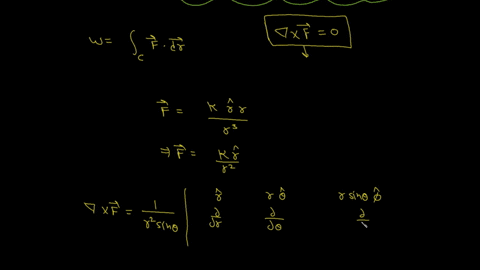 W = ∫_C F⃗ · dr⃗
∇ × F⃗ = 0
F⃗ = K r̂ r / r³
⇒ F⃗ = K r̂ / r²
∇ × F⃗ = 1 / r² sinθ | r̂ r θ̂ r sinθ φ̂
∂/∂r ∂/∂θ ∂/